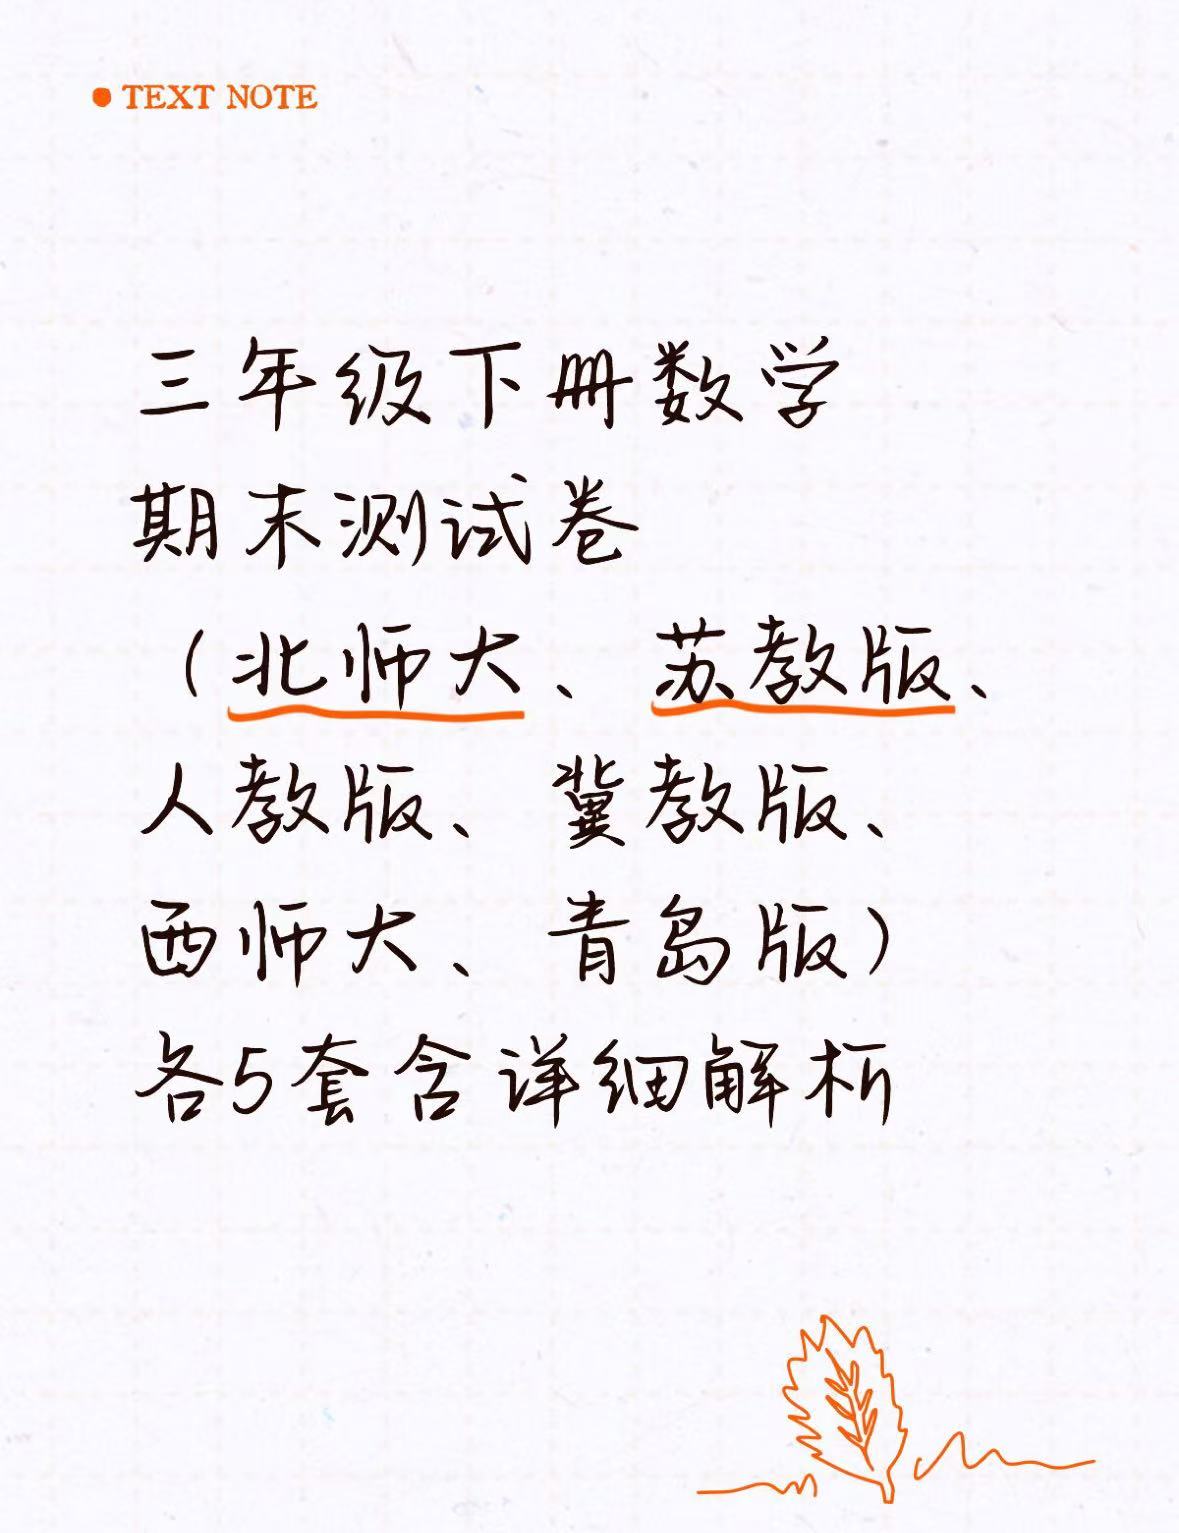 TEXT NOTE
三年级下册数学
期末测试卷
（北师大、苏教版、
人教版、冀教版、
西师大、青岛版）
各5套含详细解析